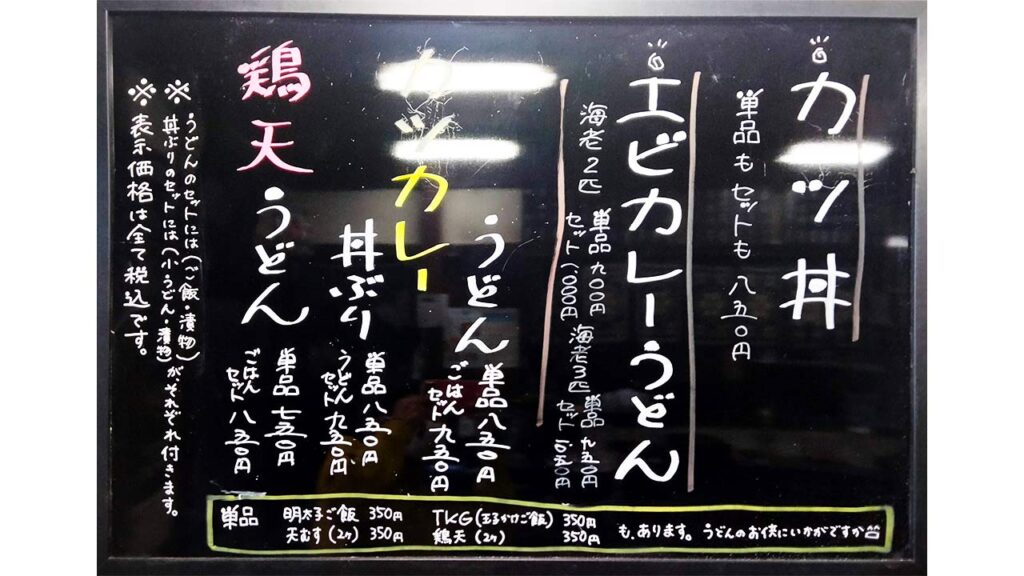 カツ丼
単品もセットも八五〇円
エビカレーうどん
海老2匹 単品 九〇〇円 セット 1,000円
海老3匹 単品 九五〇円 セット 1,050円
カツカレー
うどん
単品 八五〇円
ごはんセット 九五〇円
丼ぶり
単品 八五〇円
うどんセット 九五〇円
鶏天うどん
単品 七五〇円
ごはんセット 八五〇円
※うどんのセットには(ご飯・漬物)
丼ぶりのセットには(小うどん・漬物)がそれぞれ付きます。
※表示価格は全て税込です。
単品
明太子ご飯 350円
天むす(2ヶ) 350円
TKG(玉子かけご飯) 350円
鶏天(2ヶ) 350円
も、あります。うどんのお供にいかがですか